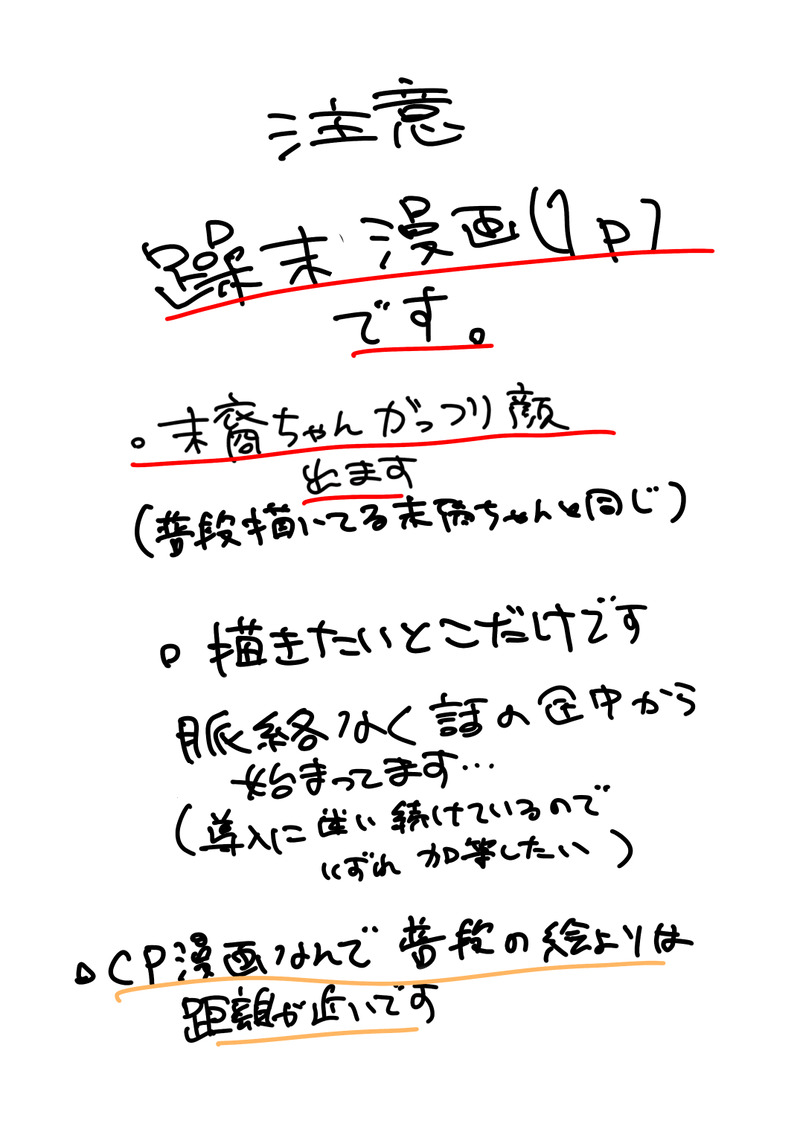 注意
躁末漫画(1p)
です。
。末裔ちゃんがっつり顔
出ます
(普段描いてる末裔ちゃんと同じ)
。描きたいとこだけです
脈絡なく話の途中から
始まってます…
(導入に迷い続けているので
いずれ加筆したい)
。CP漫画なんで普段の絵よりは
距離が近いです